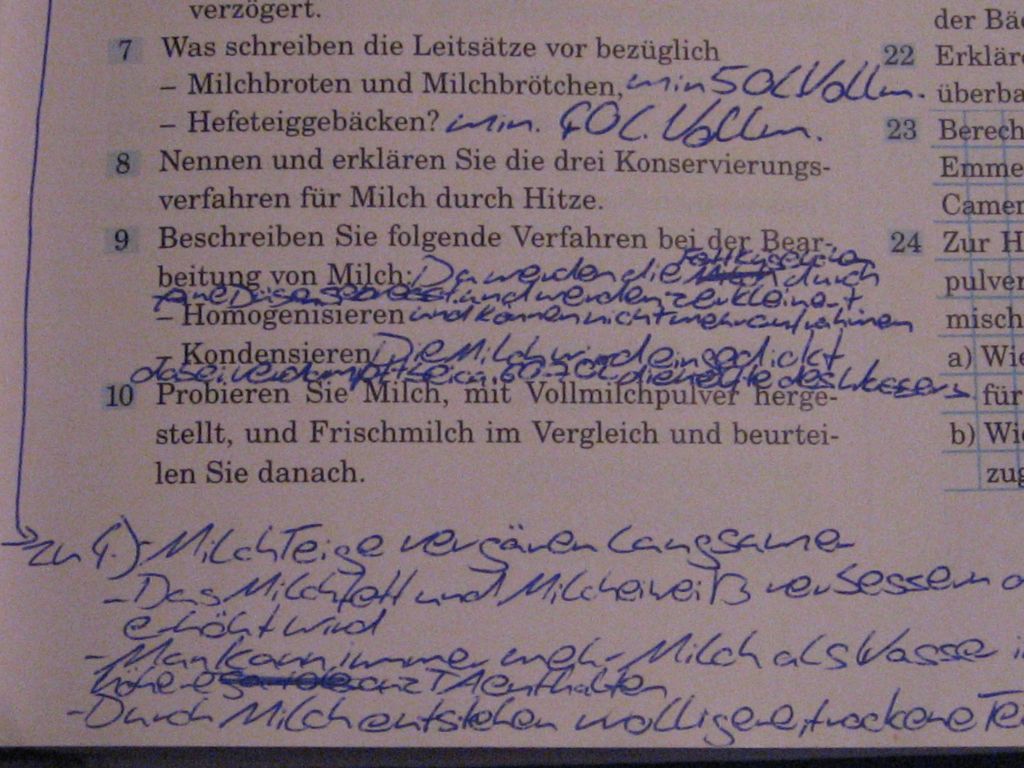 verzögert.
7 Was schreiben die Leitsätze vor bezüglich
– Milchbroten und Milchbrötchen, min 50 l Vollm.
– Hefeteiggebäcken? min. 40 l. Vollm.
8 Nennen und erklären Sie die drei Konservierungs-
verfahren für Milch durch Hitze.
9 Beschreiben Sie folgende Verfahren bei der Bear-
beitung von Milch: Da werden die Fettkügelchen durch
eine Düse gepresst und werden zerkleinert
– Homogenisieren und können nicht mehr aufrahmen
– Kondensieren Die Milch wird eingedickt
dabei verdampft die Menge des Wassers
10 Probieren Sie Milch, mit Vollmilchpulver herge-
stellt, und Frischmilch im Vergleich und beurtei-
len Sie danach.
zu 4.) - Milch Teige vergären langsamer
- Das Milchfett und Milcheiweiß verbessern
erhöht wird
- Man kann immer mehr Milch als Wasser
höhere TA enthalten
- Durch Milch entstehen wolligere, trockene Te
der Bä
22 Erkläre
überba
23 Berech
Emme
Camer
24 Zur H
pulver
misch
a) Wie
für
b) Wi
zug